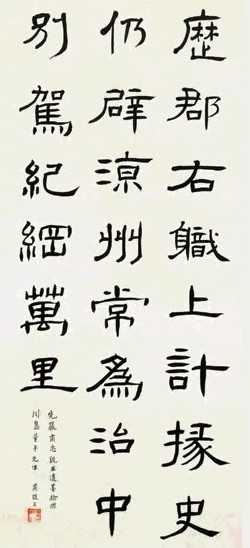 歷郡右職上計掾史
仍辟涼州常為治中
別駕紀綱萬里